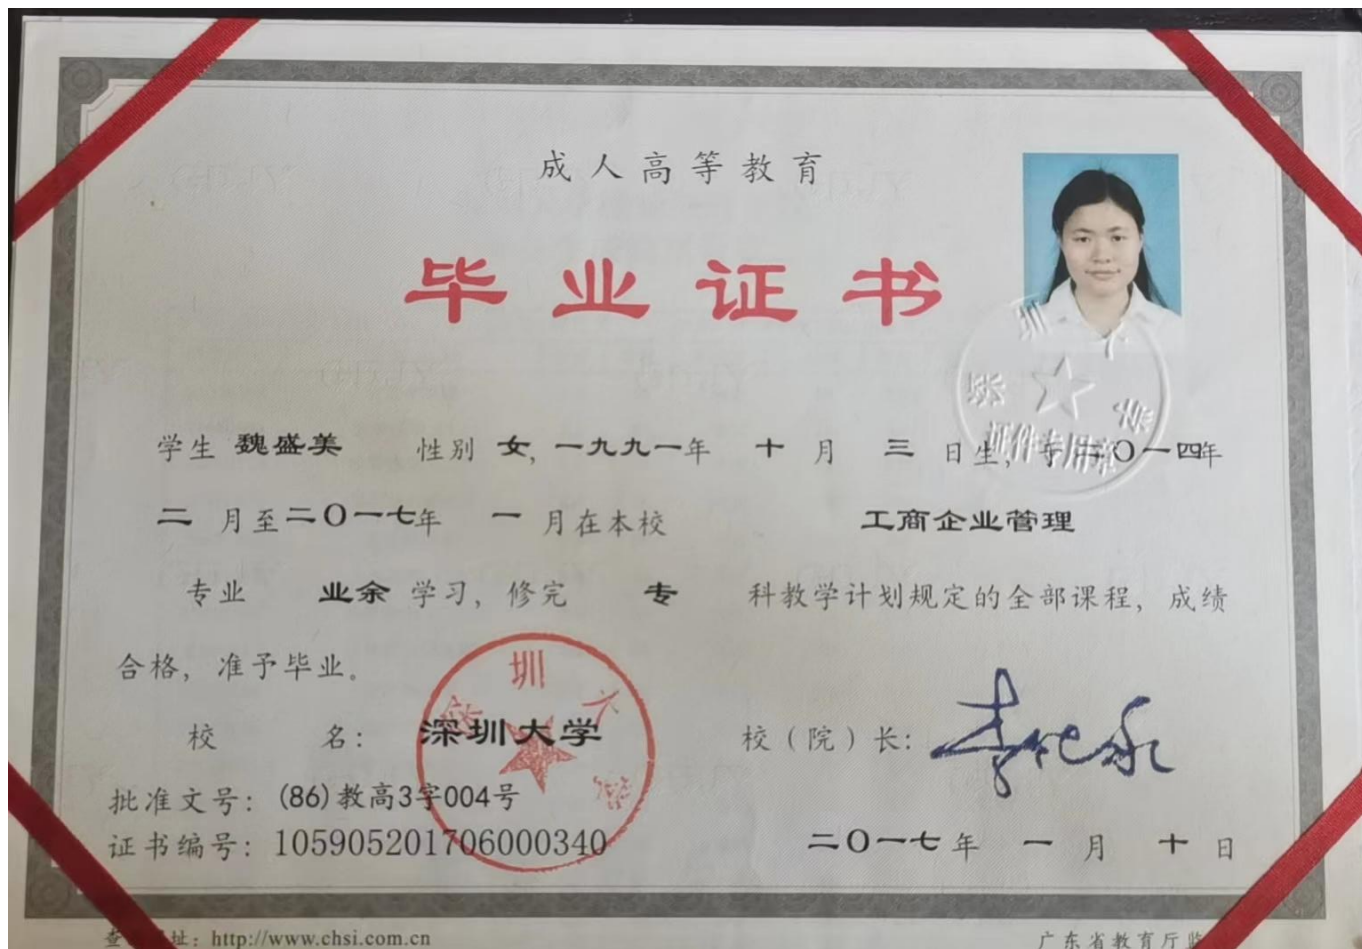 成人高等教育
毕业证书
学生 魏盛美 性别 女, 一九九一年 十 月 三 日生, 于二〇一四年
二 月至二〇一七年 一 月在本校 工商企业管理
专业 业余 学习, 修完 专 科教学计划规定的全部课程, 成绩
合格, 准予毕业。
校 名: 深圳大学 校(院)长: 李清泉
批准文号: (86)教高3字004号
证书编号: 105905201706000340 二〇一七年 一 月 十 日
深圳大学
深圳大学
证件专用章
查 址: http://www.chsi.com.cn
广东省教育厅监